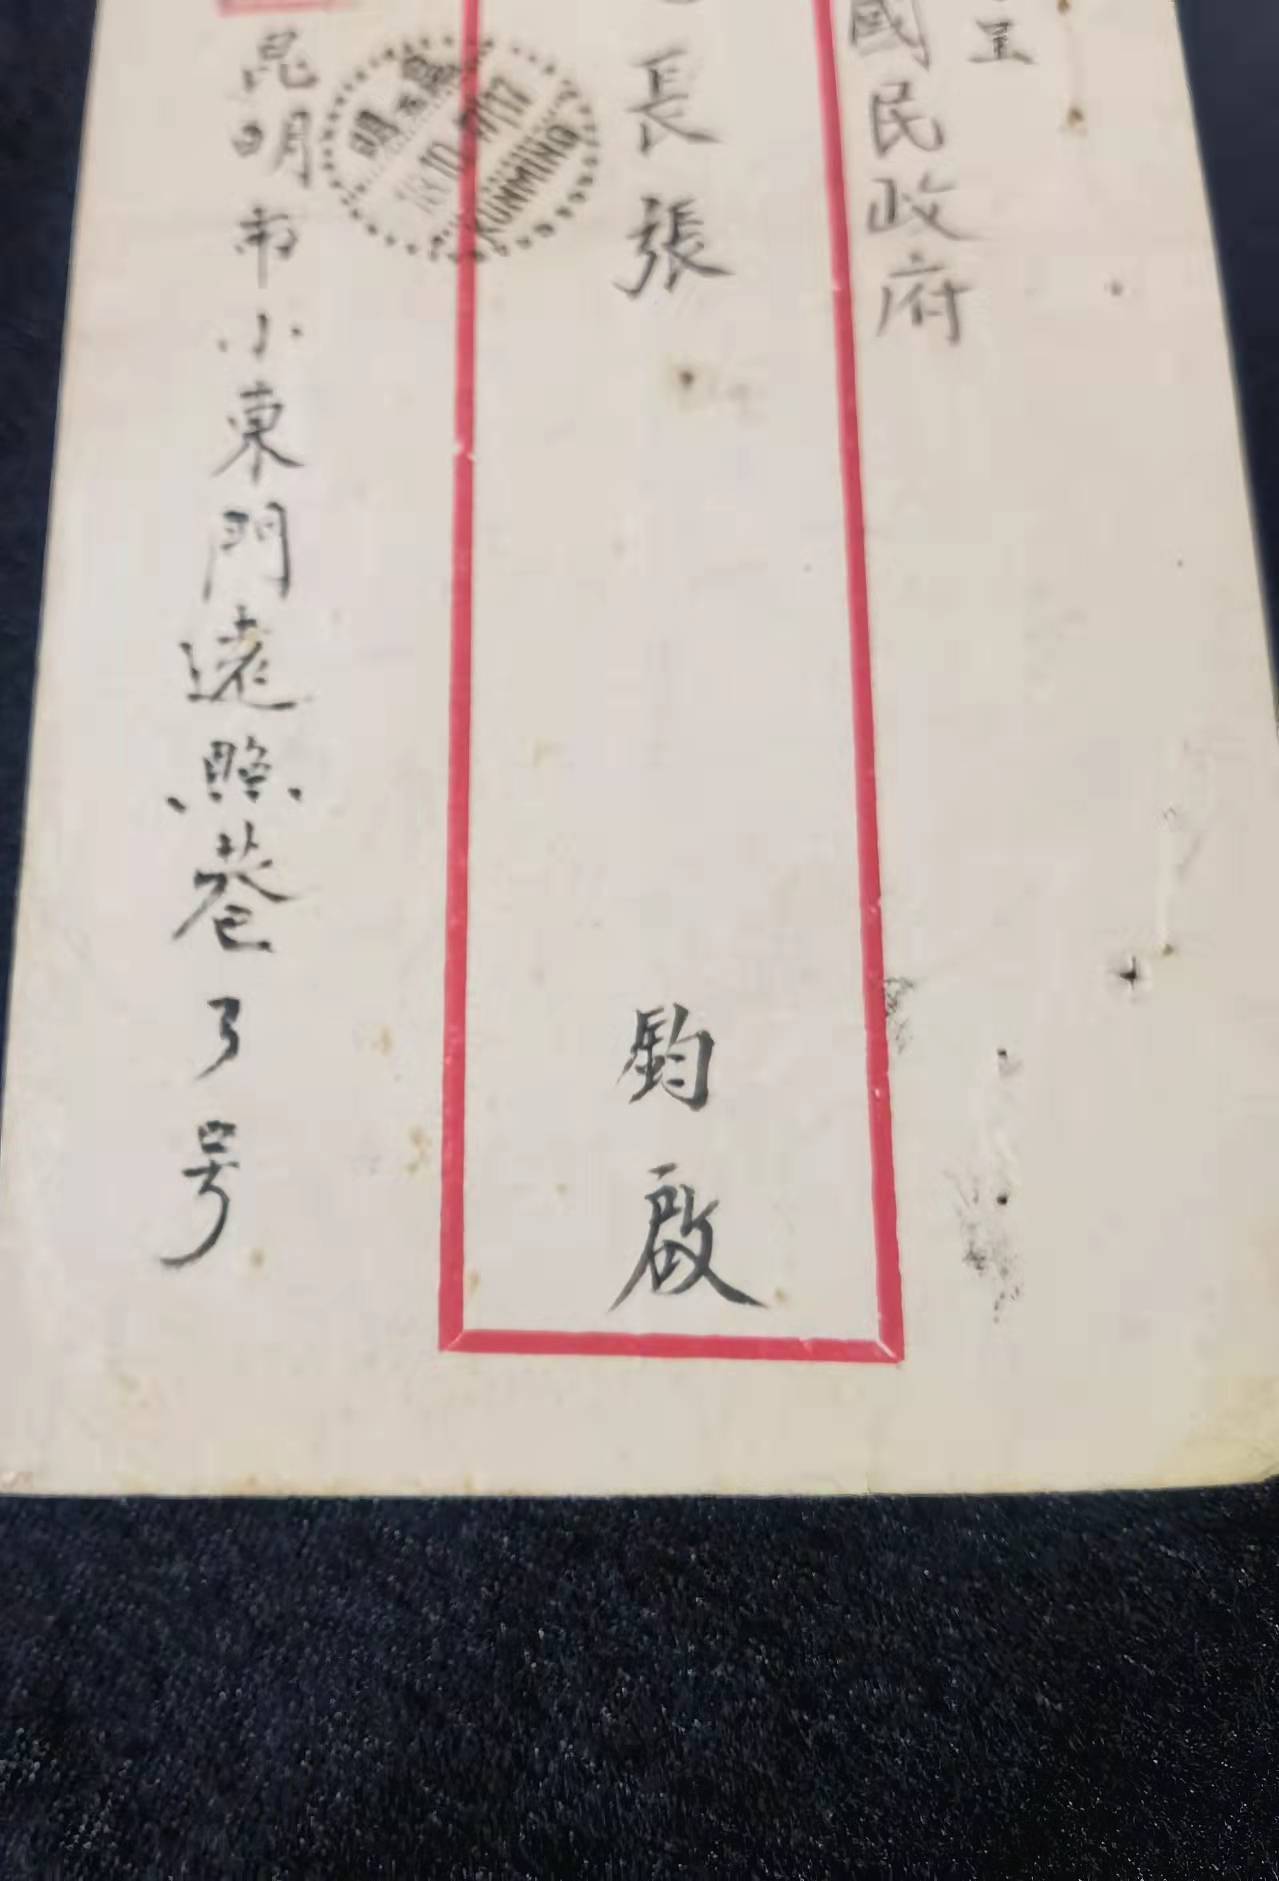 呈
國民政府
長張 鈞啟
昆明市小東門遠照巷3号
KUNMING